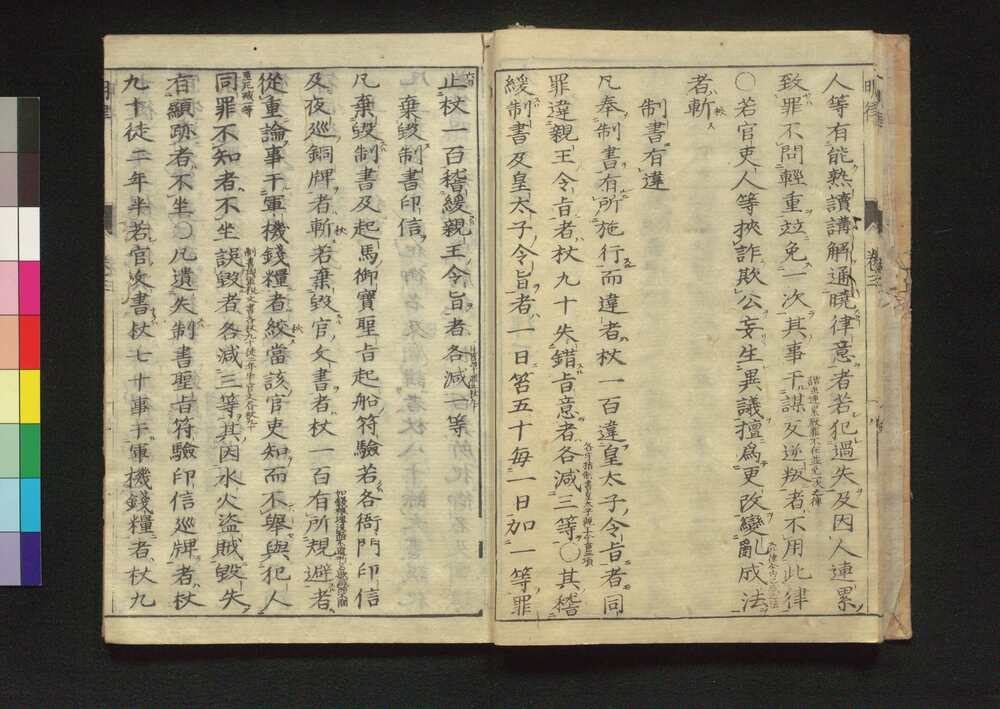 人等有能熟讀講解通曉律意者若犯過失及因人連累
致罪不問輕重竝免一次其事干謀反逆叛者不用此律
○若官吏人等挾詐欺公妄生異議擅爲更改變亂成法
者斬
制書有違
凡奉制書有所施行而違者杖一百違皇太子令旨者同
罪違親王令旨者杖九十失錯旨意者各減三等○其稽
緩制書及皇太子令旨者一日笞五十每一日加一等罪
止杖一百稽緩親王令旨者各減一等
棄毀制書印信
凡棄毀制書及起馬御寶聖旨起船符驗若各衙門印信
及夜巡銅牌者斬若棄毀官文書者杖一百有所規避者
從重論事干軍機錢糧者絞當該官吏知而不舉與犯人
同罪不知者不坐誤毀者各減三等其因水火盜賊毀失
有顯跡者不坐○凡遺失制書聖旨符驗印信巡牌者杖
九十徒二年半若官文書杖七十事干軍機錢糧者杖九